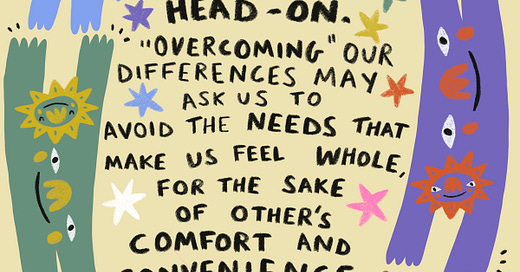 HEAD-ON.
"OVERCOMING" OUR
DIFFERENCES MAY
ASK US TO
AVOID THE NEEDS THAT
MAKE US FEEL WHOLE,
FOR THE SAKE
OF OTHER'S
COMFORT AND
CONVENIENCE